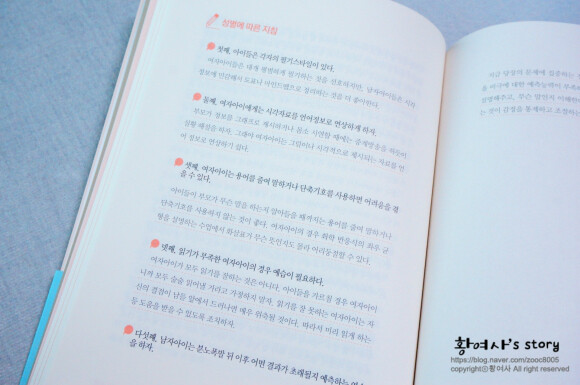 성별에 따른 지침
첫째, 아이들은 각자의 필기스타일이 있다.
여자아이들은 대개 평범하게 필기하는 것을 선호하지만, 남자아이들은 시각
정보에 민감해서 도표나 마인드맵으로 정리하는 것을 더 좋아한다.
둘째, 여자아이에게는 시각자료를 언어정보로 연상하게 하자.
부모가 정보를 그래프로 제시하거나 몸소 시연할 때에는 중계방송을 하듯이
상황 해설을 하자. 그래야 여자아이는 그림이나 시각적으로 제시되는 자료를 언
어 정보로 연상하기 쉽다.
셋째, 여자아이는 용어를 줄여 말하거나 단축기호를 사용하면 어려움을 겪
을 수 있다.
아이들이 부모가 무슨 말을 하는지 알아들을 때까지는 용어를 줄여 말하거나
단축기호를 사용하지 않는 것이 좋다. 여자아이의 경우 화학 반응식의 좌우 균
형을 설명하는 수업에서 화살표가 무슨 뜻인지도 몰라 어리둥절할 수 있다.
넷째, 읽기가 부족한 여자아이의 경우 예습이 필요하다.
여자아이가 모두 읽기를 잘하는 것은 아니다. 아이들을 가르칠 경우 여자아이
니까 모두 술술 읽어낼 거라고 가정하지 말자. 읽기를 잘 못하는 여자아이는 자
신의 결점이 남들 앞에서 드러나면 매우 위축될 것이다. 따라서 미리 읽게 하는
등 도움을 받을 수 있도록 조치하자.
다섯째, 남자아이는 분노폭발 뒤 이후 어떤 결과가 초래될지 예측하는
을 하자.
지금 당장의 문제에 집중하는
설명해주고, 무슨
는 것이 감정을 통제하고 조망하는
황여사's story
https://blog.naver.com/zooc8005
copyrightⓒ황여사 All right reserved